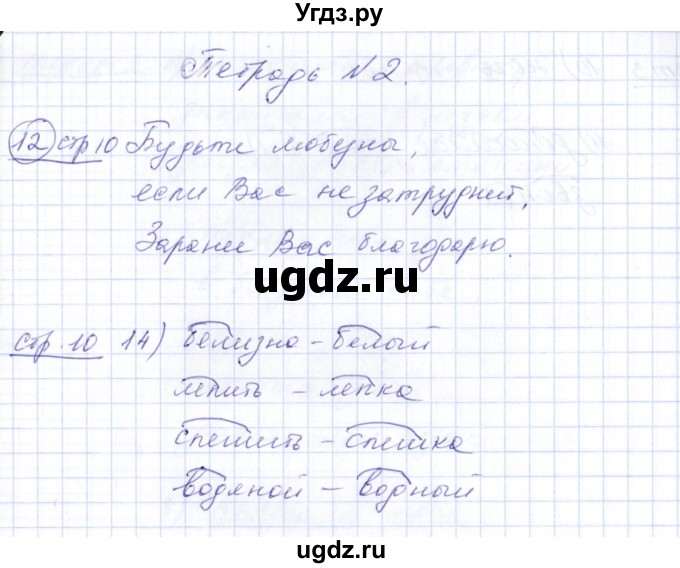 Угдз.ру
Тетрадь №2.
12 стр 10 Будьте любезны,
если Вас не затруднит,
Заранее Вас благодарю.
ugdz.ru
стр. 10 14) белизна - белый
лепить - лепка
спешить - спешка
водяной - водный
ugdz.ru